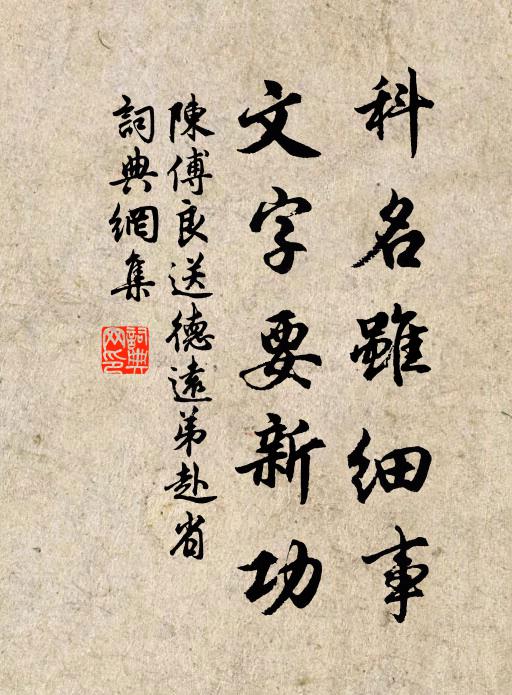 科名雖细事
文字要新功
陳傅良送德遠弟赴省
詞典網集
詞典网印